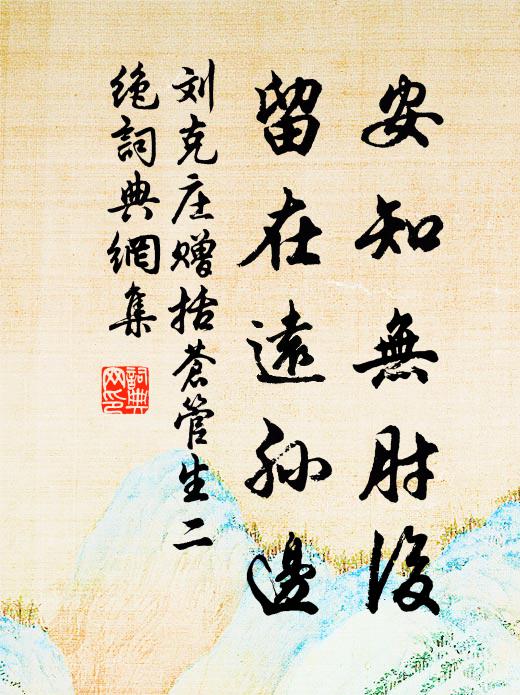 安知無肘後
留在遠孫邊
刘克庄赠括蒼管生二
绝詞典網集
詞典
网印